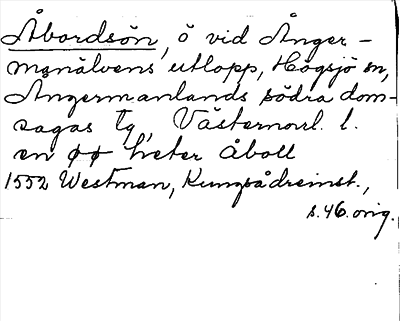 Åbordsön, ö vid Ånger-
manälvens utlopp, Högsjö sn,
Ångermanlands södra dom-
sagas tg, Västernorrl. l.
en öö heter åboll
1552 Westman, Kungsådreinst.,
s. 46. orig.